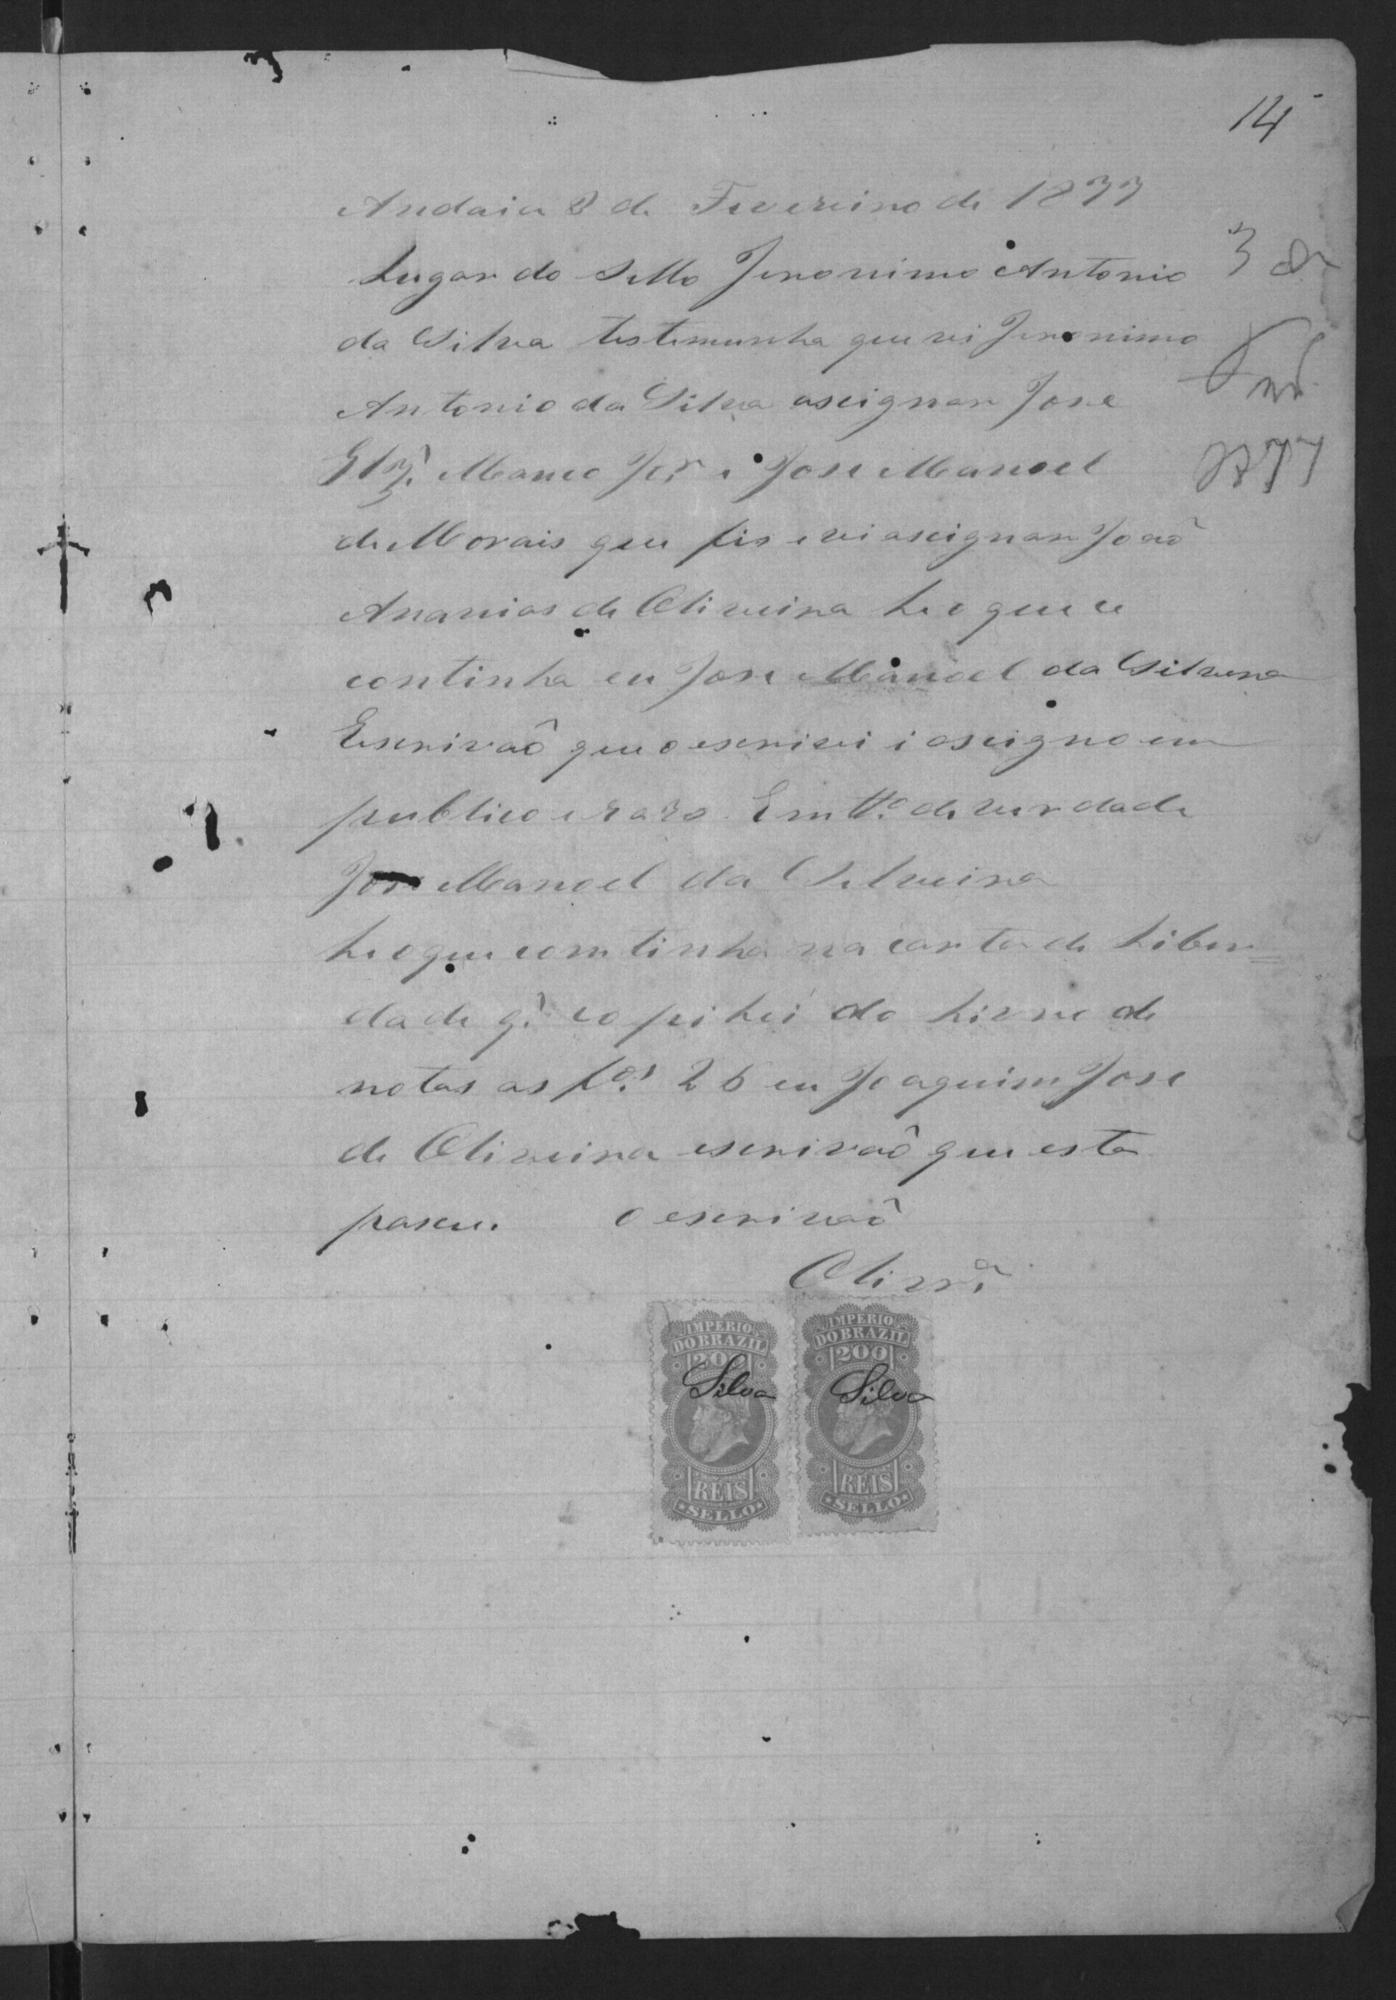 14
Andaia 8 de Fevereiro de 1877
Lugar do Sello Jeronimo Antonio
da Silva testemunha que vi Jeronimo
Antonio da Silva assignar Jose
Manoel Jose Manoel
de Morais que fis e vi assignar Joaõ
Ananias de Oliveira he o que se
continha eu Jose Manoel da Silveira
Escrivaõ que o escrivi i assigno em
publico e raso Em tto. de verdade
Jose Manoel da Silveira
he o que comtinha na carta de Liber=
dade q. copihei do Livro de
notas as fas. 26 eu Joaquim Jose
de Oliveira escrivaõ que esta
pasei. o escrivaõ
Olivra.
3 de
1877
IMPERIO DO BRAZIL
200
Silva
REIS
SELLO
IMPERIO DO BRAZIL
200
Silva
REIS
SELLO